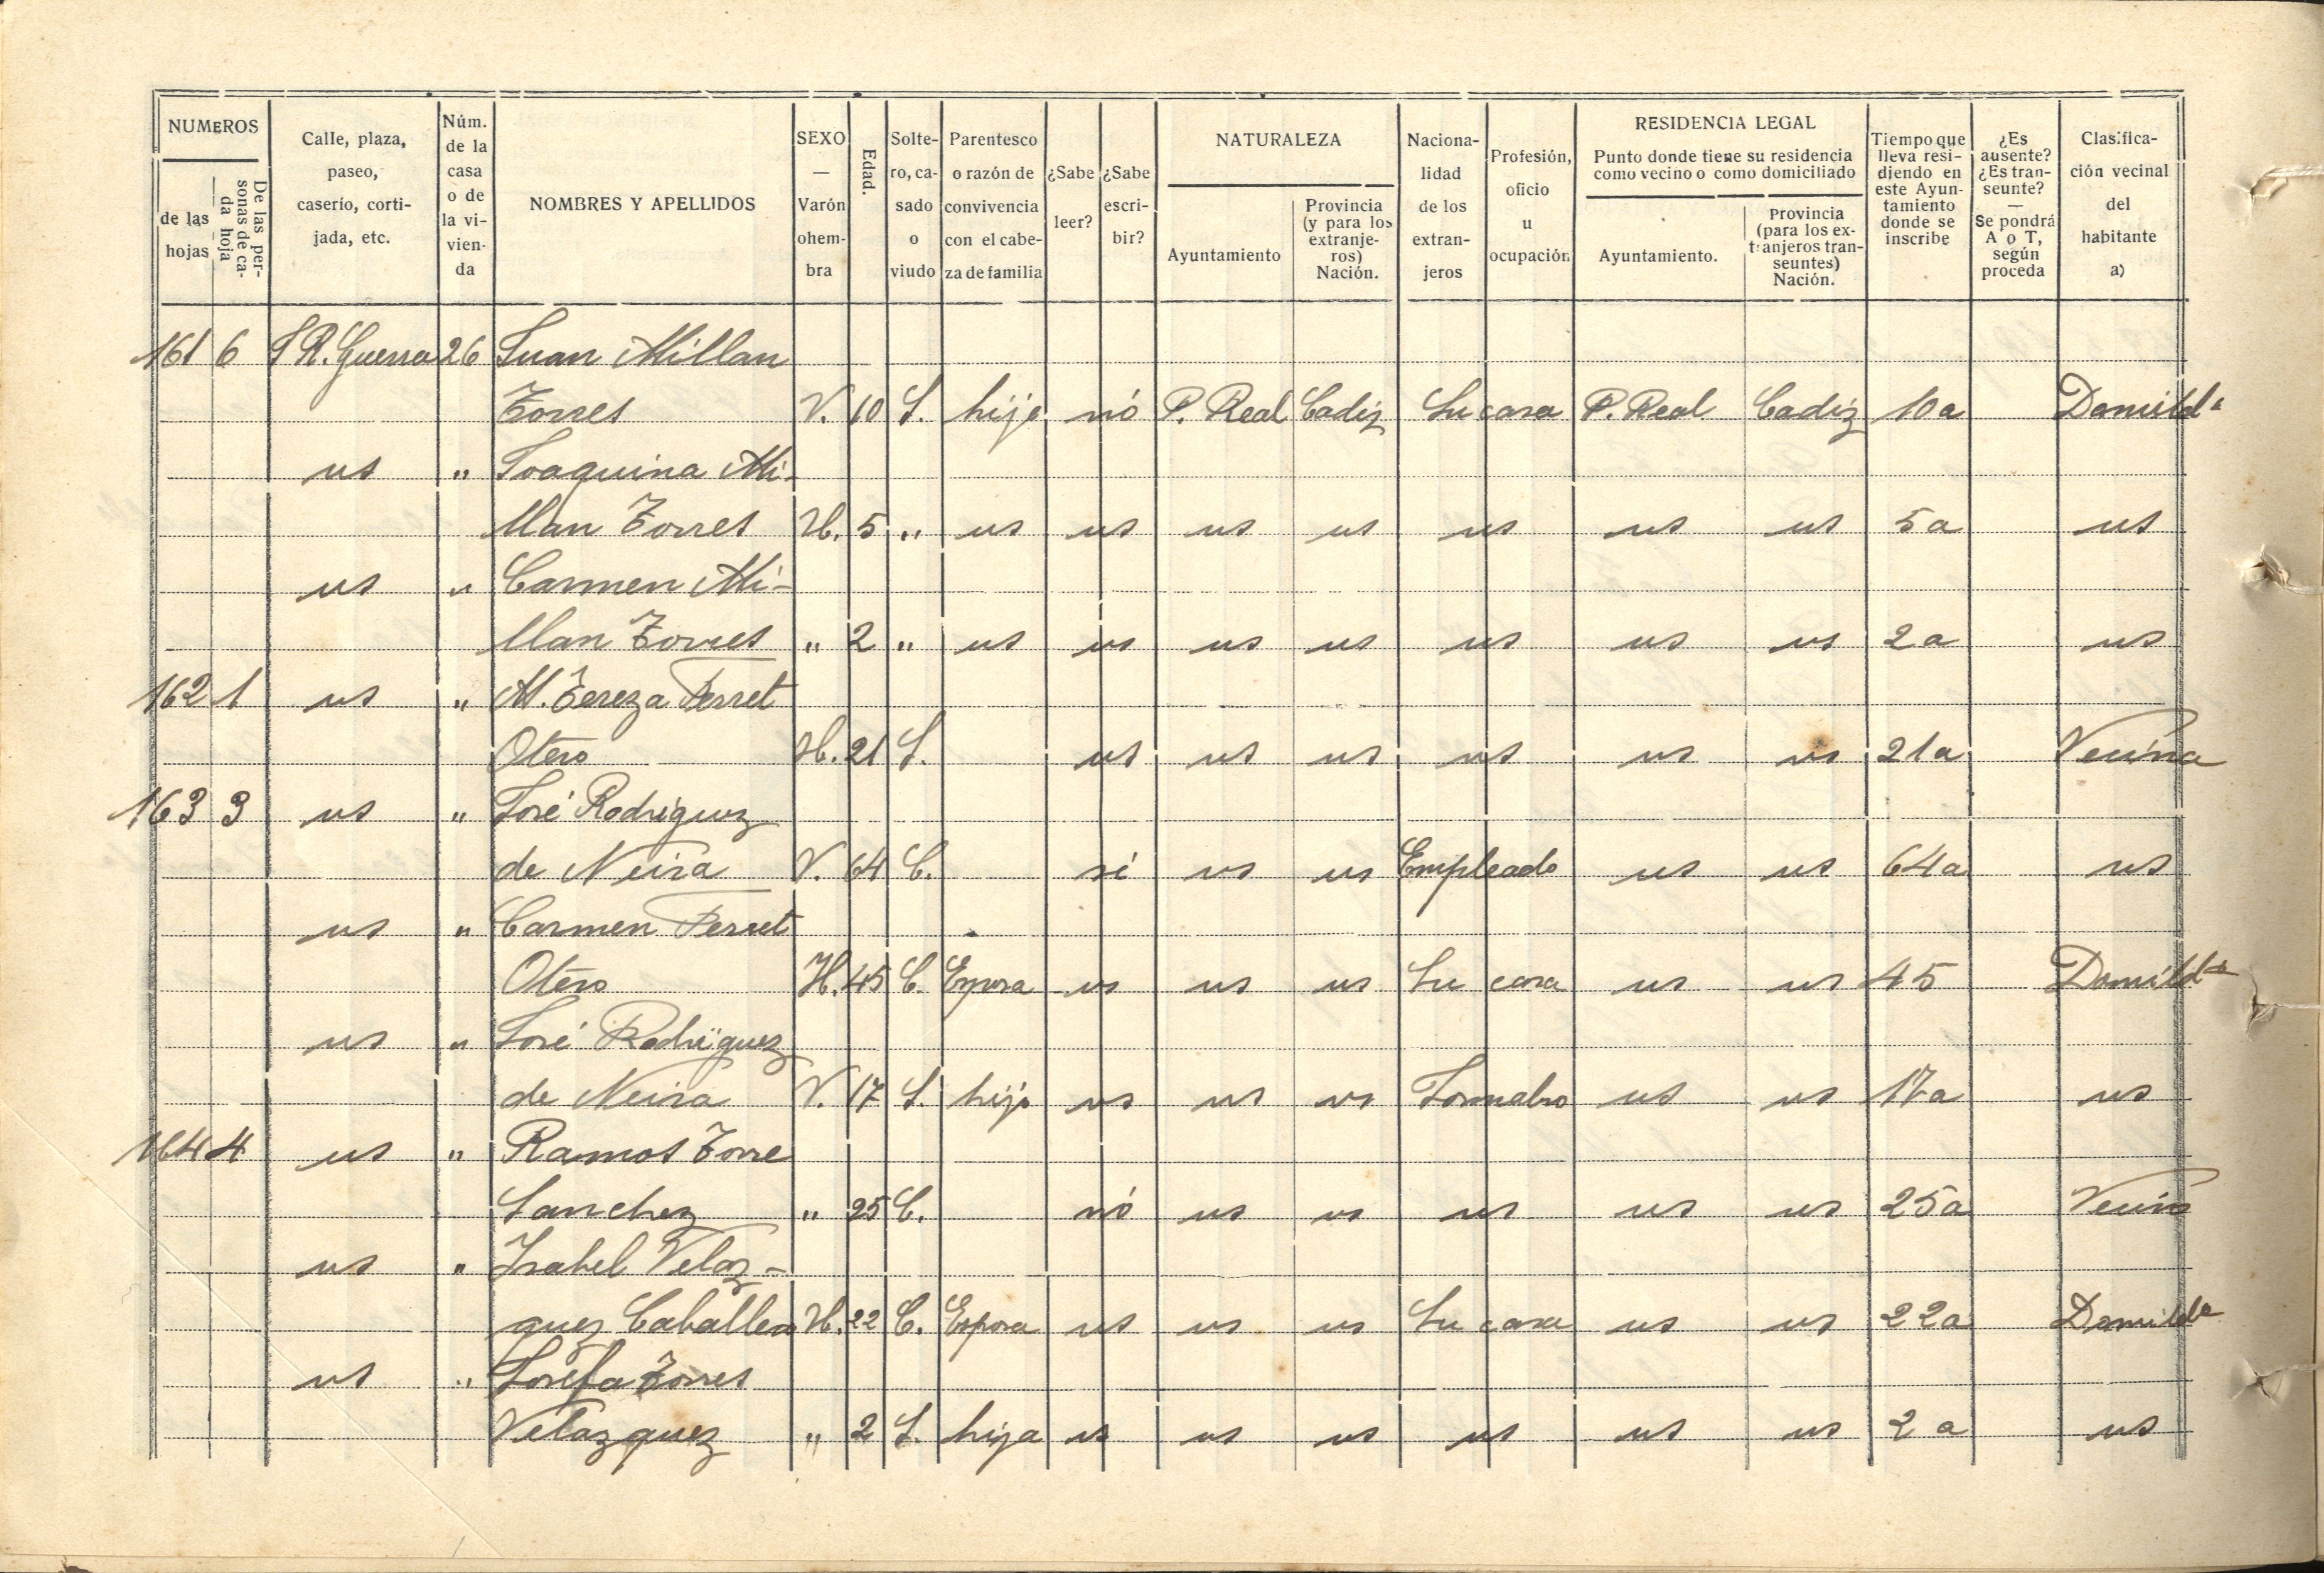 NUMEROS
de las hojas
De las personas de cada hoja
Calle, plaza, paseo, caserío, cortijada, etc.
Núm. de la casa o de la vivienda
NOMBRES Y APELLIDOS
SEXO — Varón o hembra
Edad.
Soltero, casado o viudo
Parentesco o razón de convivencia con el cabeza de familia
¿Sabe leer?
¿Sabe escribir?
NATURALEZA
Ayuntamiento
Provincia (y para los extranjeros) Nación.
Nacionalidad de los extranjeros
Profesión, oficio u ocupación
RESIDENCIA LEGAL
Punto donde tiene su residencia como vecino o como domiciliado
Ayuntamiento.
Provincia (para los extranjeros transeuntes) Nación.
Tiempo que lleva residiendo en este Ayuntamiento donde se inscribe
¿Es ausente? ¿Es transeunte? — Se pondrá A o T, según proceda
Clasificación vecinal del habitante a)
161 6 S R. Guerra 26 Juan Millan
Torres V. 10 S. hijo nó P. Real Cadiz Su casa P. Real Cadiz 10 a Domicilda
us " Joaquina Mi-
llan Torres H. 5 " us us us us us us us 5 a us
us " Carmen Mi-
llan Torres " 2 " us us us us us us us 2 a us
162 1 us " M. Tereza Perret
Otero H. 21 S. us us us us us us 21 a Vecina
163 3 us " José Rodriguez
de Neira V. 64 C. si us us Empleado us us 64 a us
us " Carmen Perret
Otero H. 45 C. Espora us us us Su casa us us 45 Domicilda
us " José Rodriguez
de Neira V. 17 S. hijo us us us us us 17 a us
164 4 us " Ramos Torre
Sanchez " 25 C. nó us us us us us 25 a Vecino
us " Isabel Velaz-
quez Caballero H. 22 C. Espora us us us Su casa us us 22 a Domicilda
us " Josefa Torres
Velazquez " 2 S. hija us us us us us us 2 a us